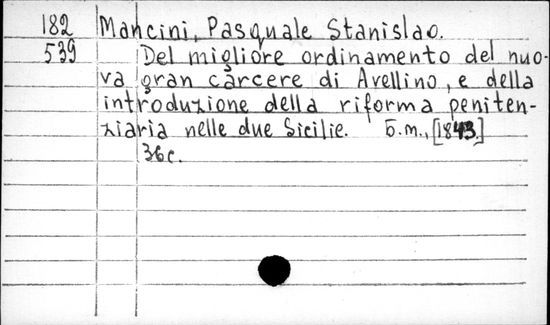 182 Mancini, Pasquale Stanislao.
539 Del migliore ordinamento del nuo-
va gran carcere di Avellino, e della
introduzione della riforma peniten-
ziaria nelle due Sicilie. Б.m., [1843.]
36c.